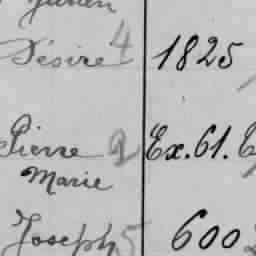 Désiré 4 1825
Pierre 2 Ex. 61.
Marie
Joseph 5 600